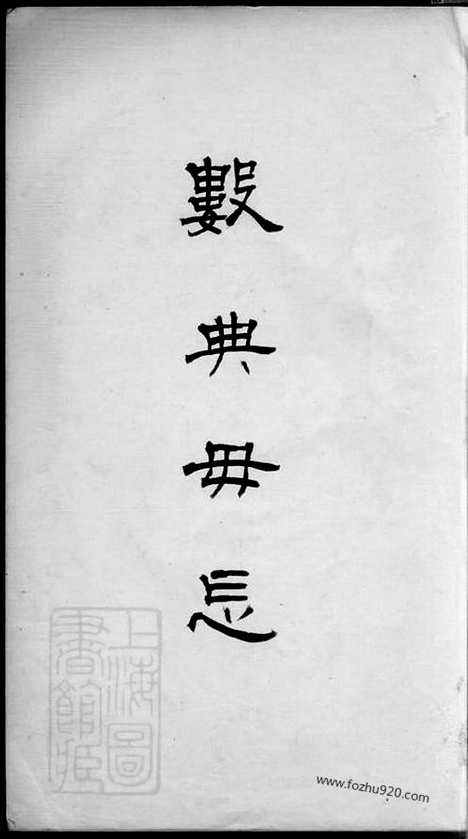 數典毋忘
上海圖
書館藏
www.fozhu920.com